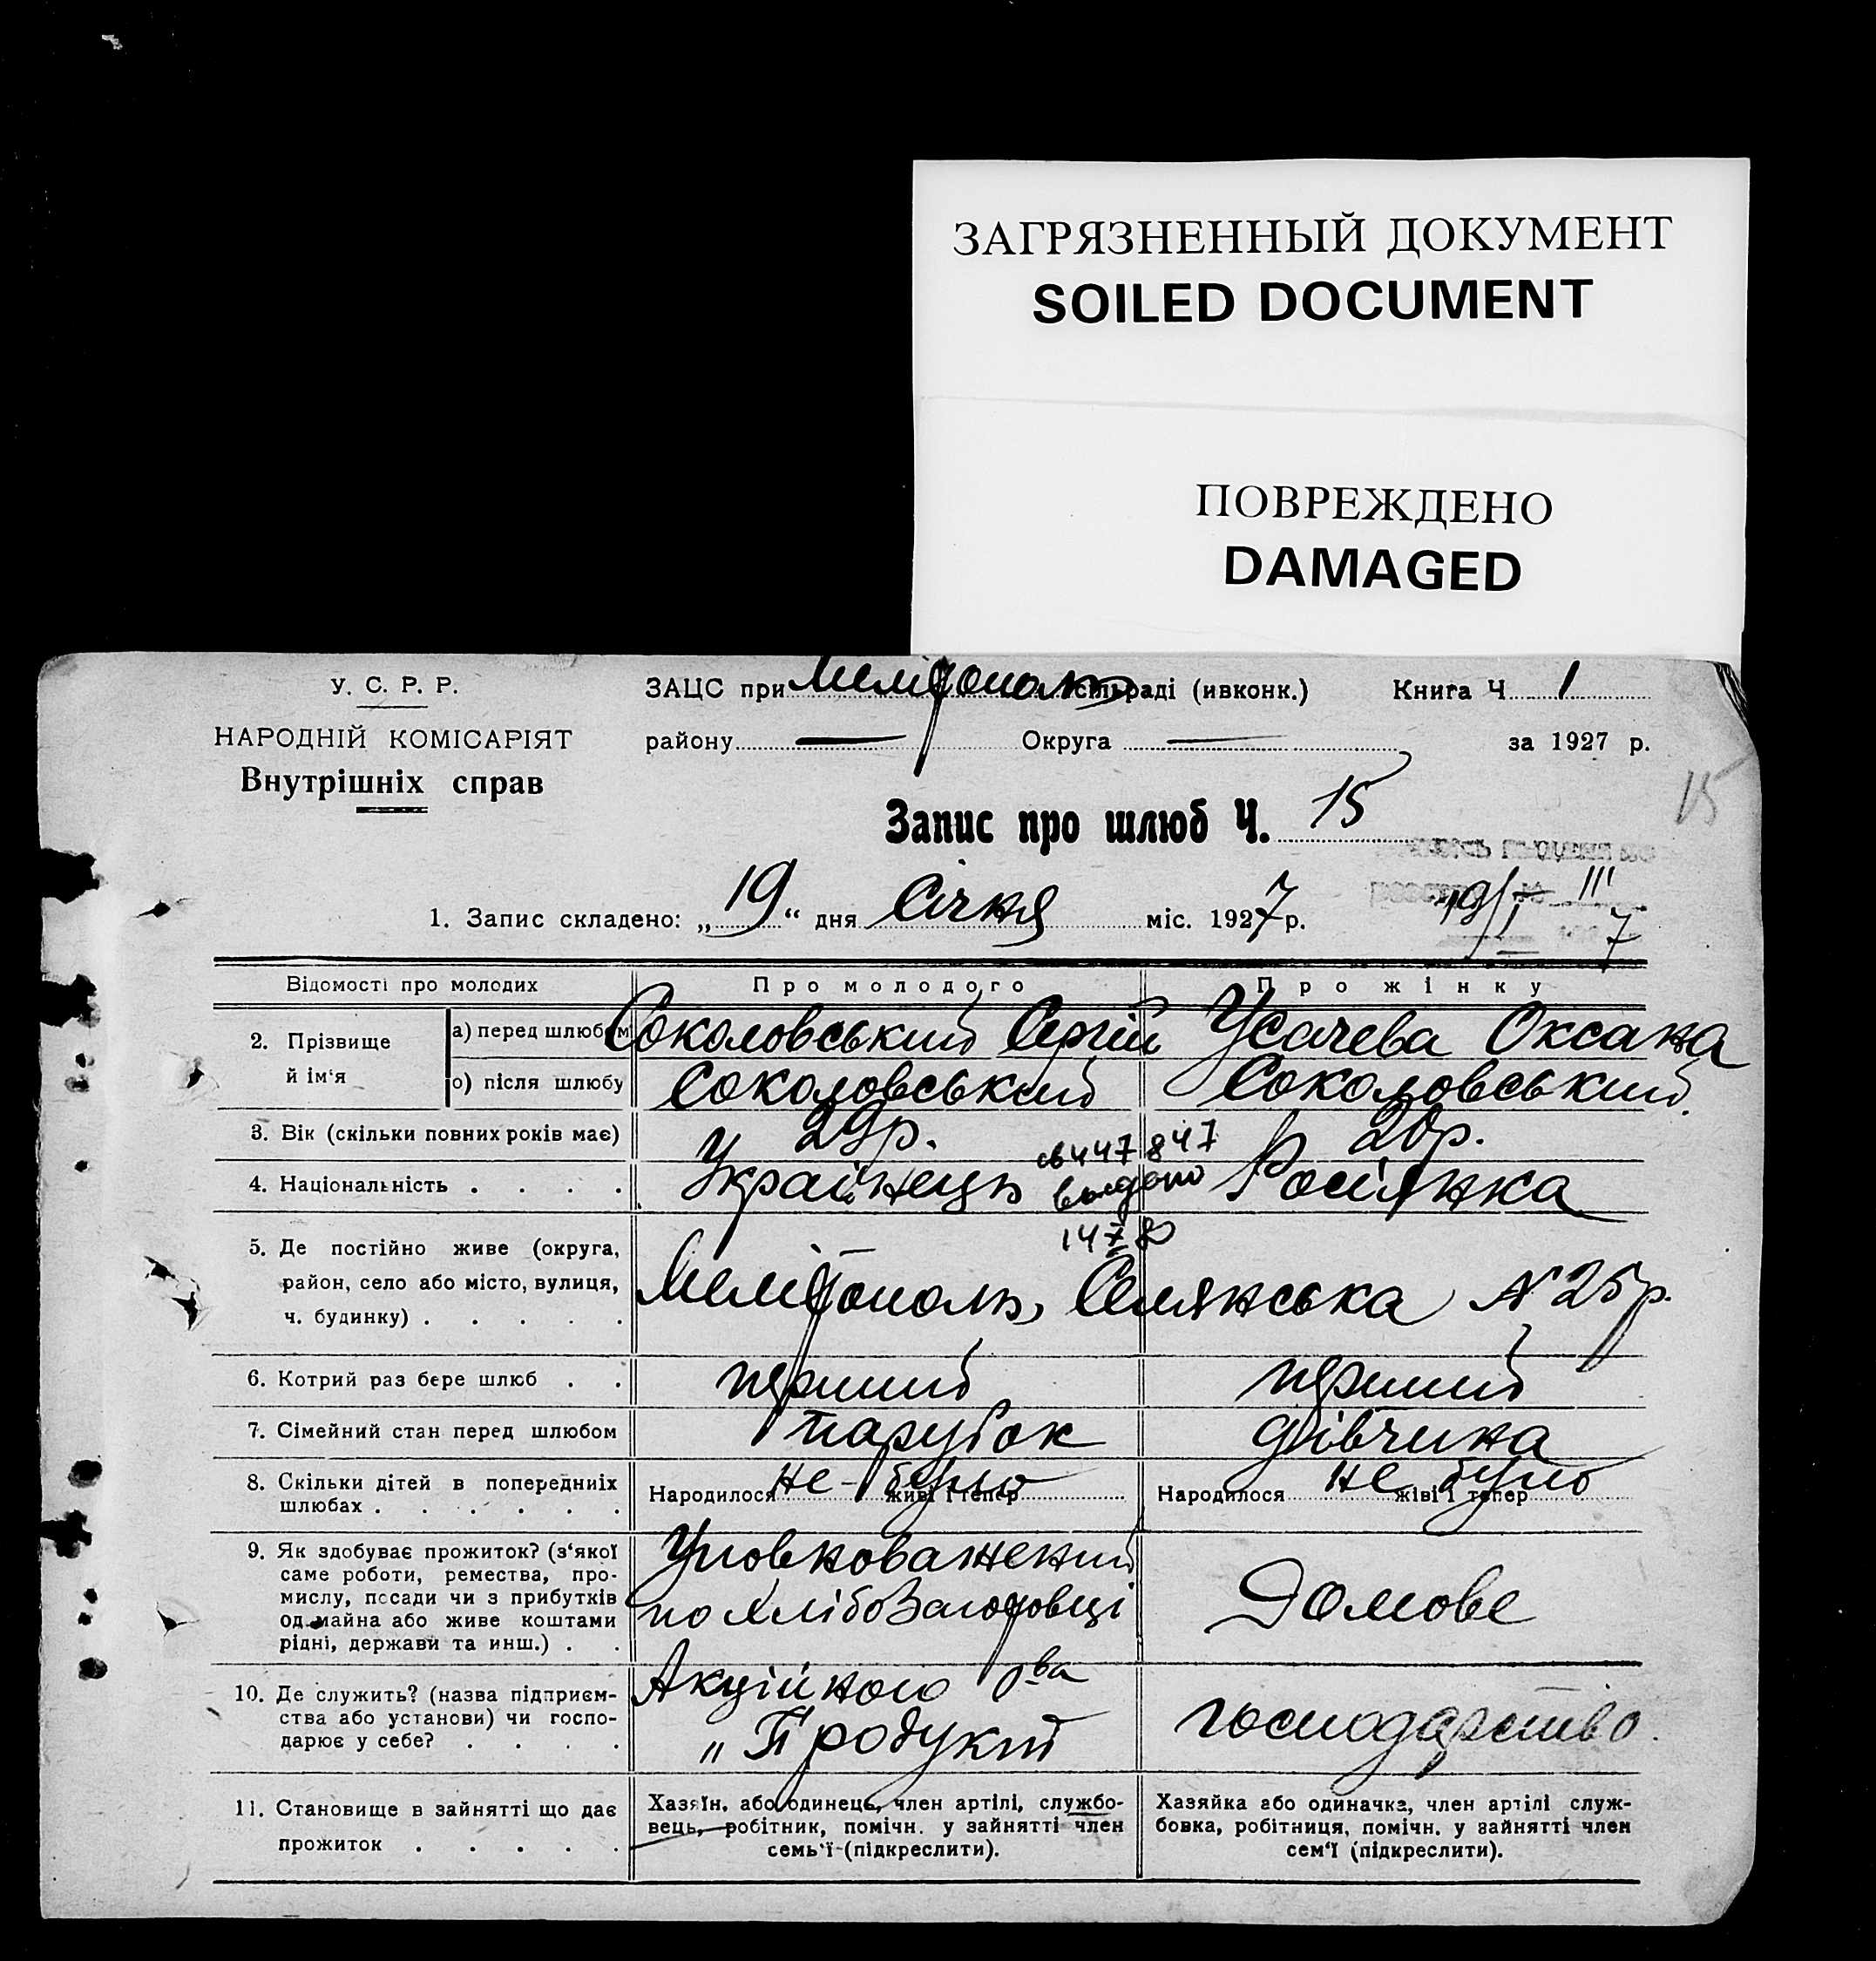 ЗАГРЯЗНЕННЫЙ ДОКУМЕНТ
SOILED DOCUMENT
ПОВРЕЖДЕНО
DAMAGED
У. С. Р. Р.
НАРОДНІЙ КОМІСАРІЯТ
Внутрішніх справ
ЗАЦС при Мелітополь сільраді (ивконк.) Книга Ч 1
району — Округа — за 1927 р.
15
Запис про шлюб Ч. 15
1. Запис складено: „19“ дня Січня міс. 1927 р.
19/I 7
Відомості про молодих Про молодого Про жінку
2. Прізвище й ім‘я
а) перед шлюбом Соколовський Сергій Усачева Оксана
о) після шлюбу Соколовський Соколовський
3. Вік (скільки повних років має) 29р. 20р.
4. Національність . . . . Українець Росіянка
выдано
5. Де постійно живе (округа,
район, село або місто, вулиця,
ч. будинку) . . . . .
Мелітополь, Селянська N 25 р.
6. Котрий раз бере шлюб . . перший перший
7. Сімейний стан перед шлюбом парубок дівчина
8. Скільки дітей в попередниіх
шлюбах . . . . . .
Народилося не було живі і тепер Народилося не було жіві і тепер
9. Як здобуває прожиток? (з‘якої
саме роботи, ремества, про-
мислу, посади чи з прибутків
од майна або живе коштами
рідні, держави та инш.) . .
Уповноважений
по хлібозаготовці
Домове
10. Де служить? (назва підприєм-
ства або установи) чи госпо-
дарює у себе? . . . .
Акційного т-ва
„Продукт
господарство
11. Становище в зайнятті що дає
прожиток . . . . .
Хазяїн, або одинець, член артілі, службо-
вець, робітник, помічн. у зайнятті член
семь‘ї (підкреслити).
Хазяйка або одиначка, член артілі служ-
бовка, робітниця, помічн. у зайнятті член
сем‘ї (підкреслити).